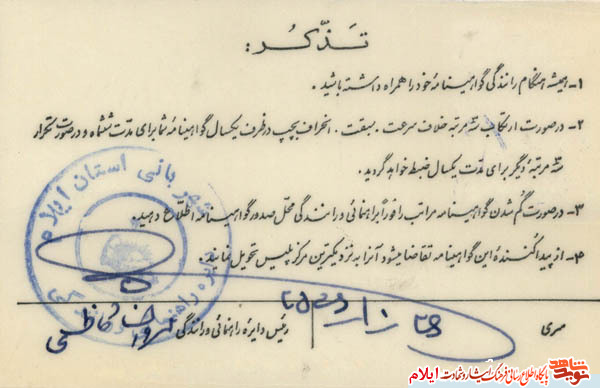 تذکر :
۱- همیشه هنگام رانندگی گواهینامه خود را همراه داشته باشید .
۲- در صورت ارتکاب سه مرتبه خلاف سرعت . سبقت . انحراف بچپ در ظرف یکسال گواهینامه شما برای مدت ششماه و در صورت تکرار
سه مرتبه دیگر برای مدت یکسال ضبط خواهد گردید .
۳- در صورت گم شدن گواهینامه مراتب را فوراً براهنمائی و رانندگی محل صدور گواهینامه اطلاع دهید .
۴- از پیدا کننده این گواهینامه تقاضا میشود آنرا به نزدیکترین مرکز پلیس تحویل نمایند .
شهربانی استان ایلام
سری
رئیس دایره راهنمائی و رانندگی
کاظمی
نوید شاهد
پایگاه اطلاع رسانی فرهنگ ایثار و شهادت ایلام